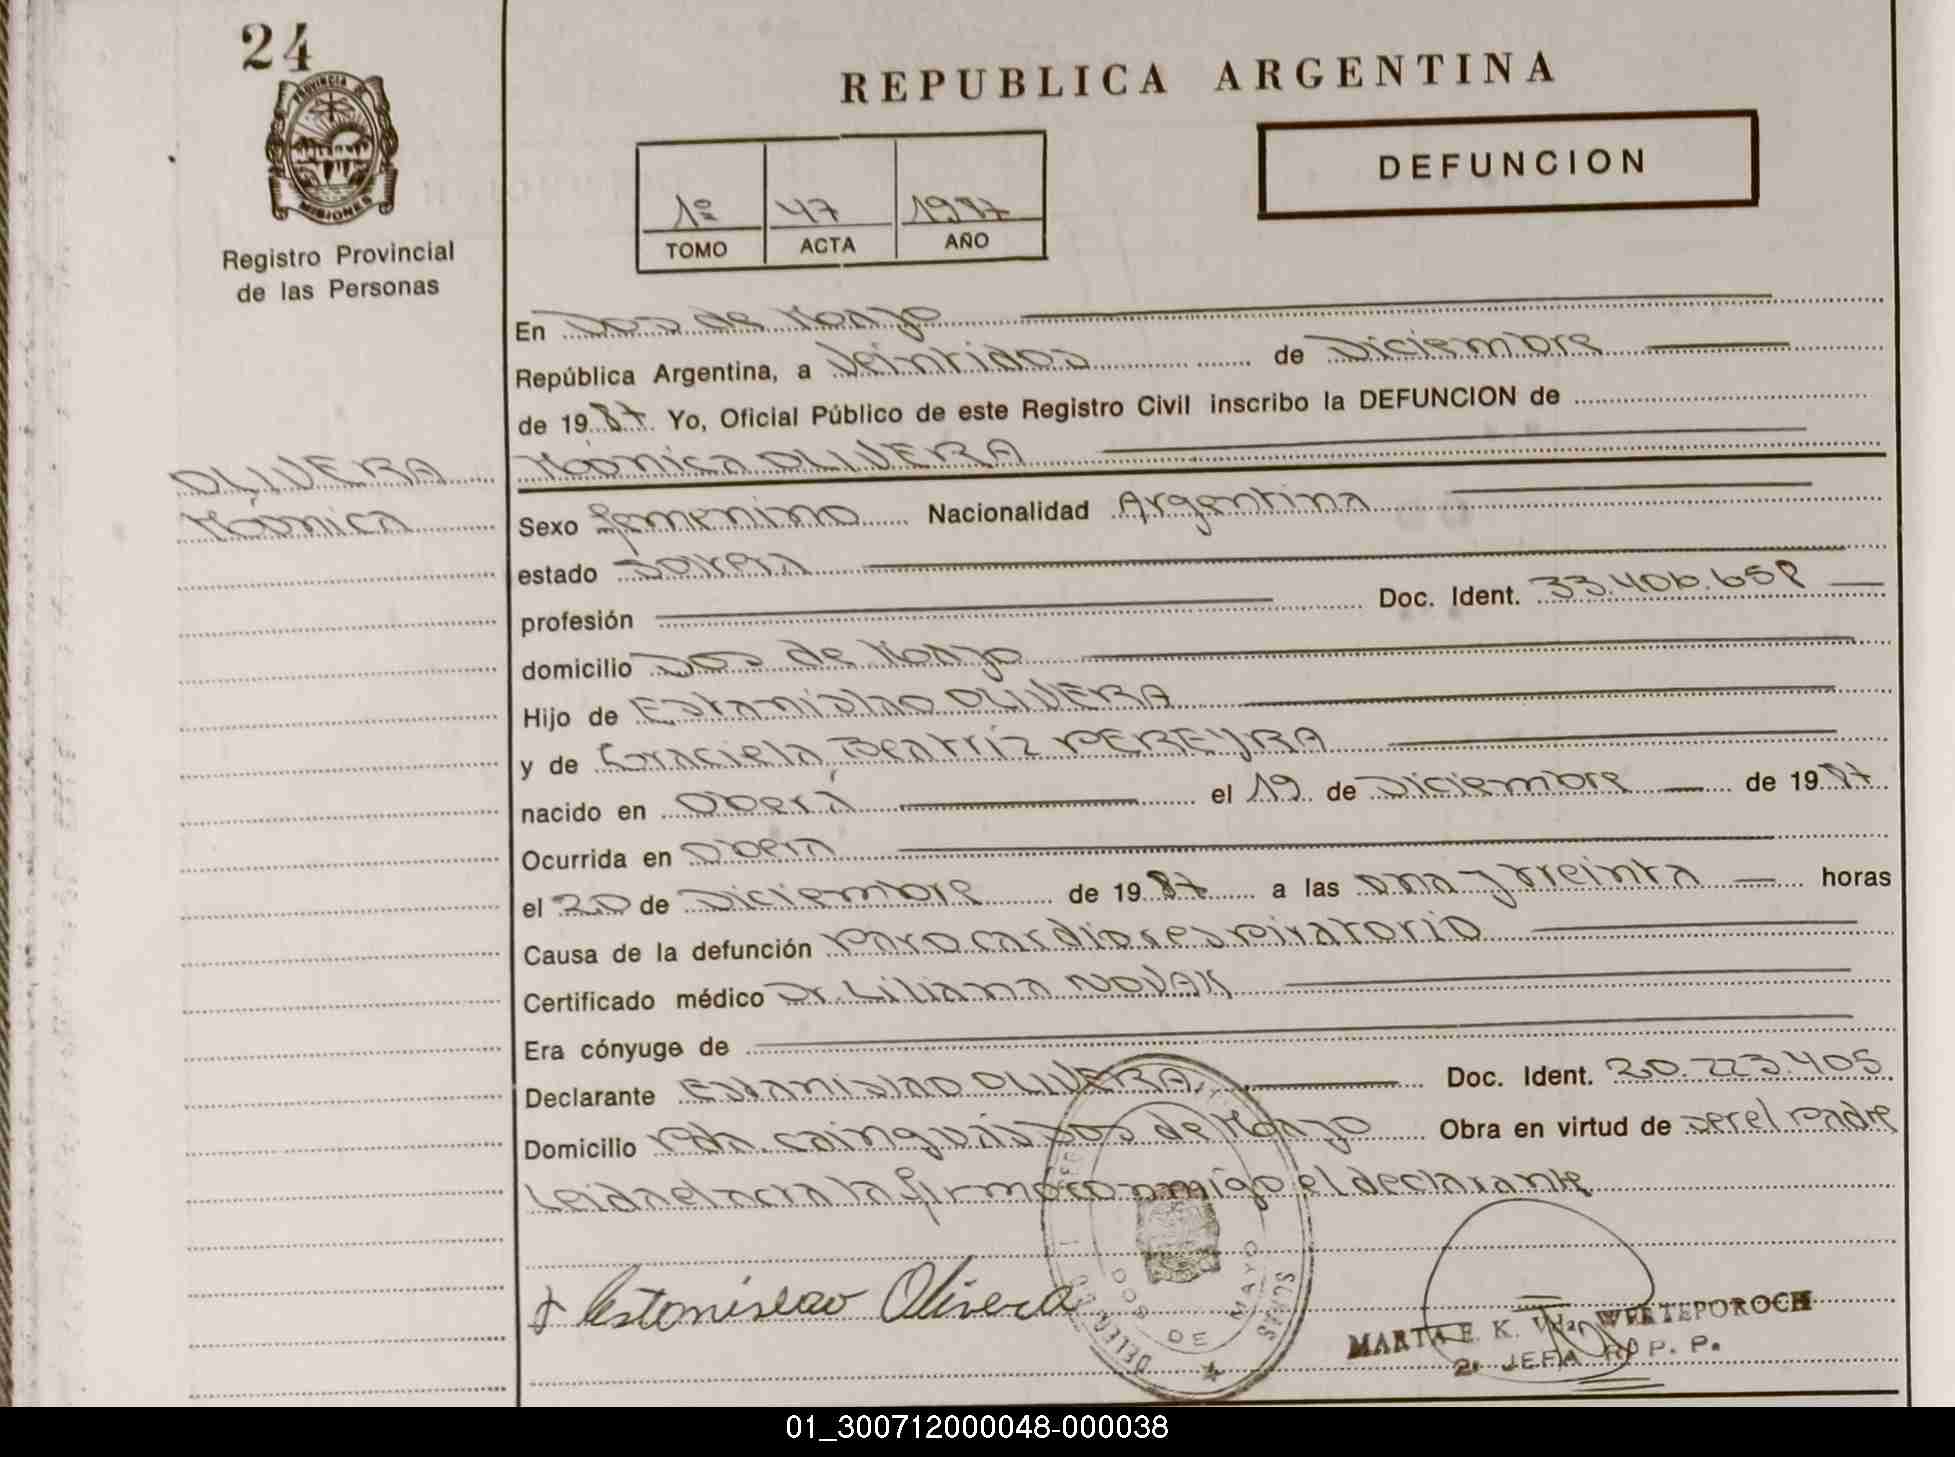 24
REPUBLICA ARGENTINA
PROVINCIA DE
MISIONES
Registro Provincial
de las Personas
DEFUNCION
1º 47 1987
TOMO ACTA AÑO
En Dos de Mayo
República Argentina, a Veintidos de Diciembre
de 1987 Yo, Oficial Público de este Registro Civil inscribo la DEFUNCION de
OLIVERA
Mónica
Mónica OLIVERA
Sexo femenino Nacionalidad Argentina
estado Soltera
profesión Doc. Ident. 33.406.658
domicilio Dos de Mayo
Hijo de Estanislao OLIVERA
y de Graciela Beatríz PEREYRA
nacido en Oberá el 19 de Diciembre de 1987
Ocurrida en Oberá
el 20 de Diciembre de 1987 a las una y treinta horas
Causa de la defunción Paro cardiorespiratorio
Certificado médico Dr. Liliana NOVAK
Era cónyuge de
Declarante Estanislao OLIVERA Doc. Ident. 20.223.405
Domicilio Pdn. cainguás Dos de Mayo Obra en virtud de ser el Padre
Leida el acta la firma conmigo el declarante
Estanislao Olivera
DOS DE MAYO
MARTA E. K. WERTEPOROCH
2. JEFA R. P. P.
01_300712000048-000038